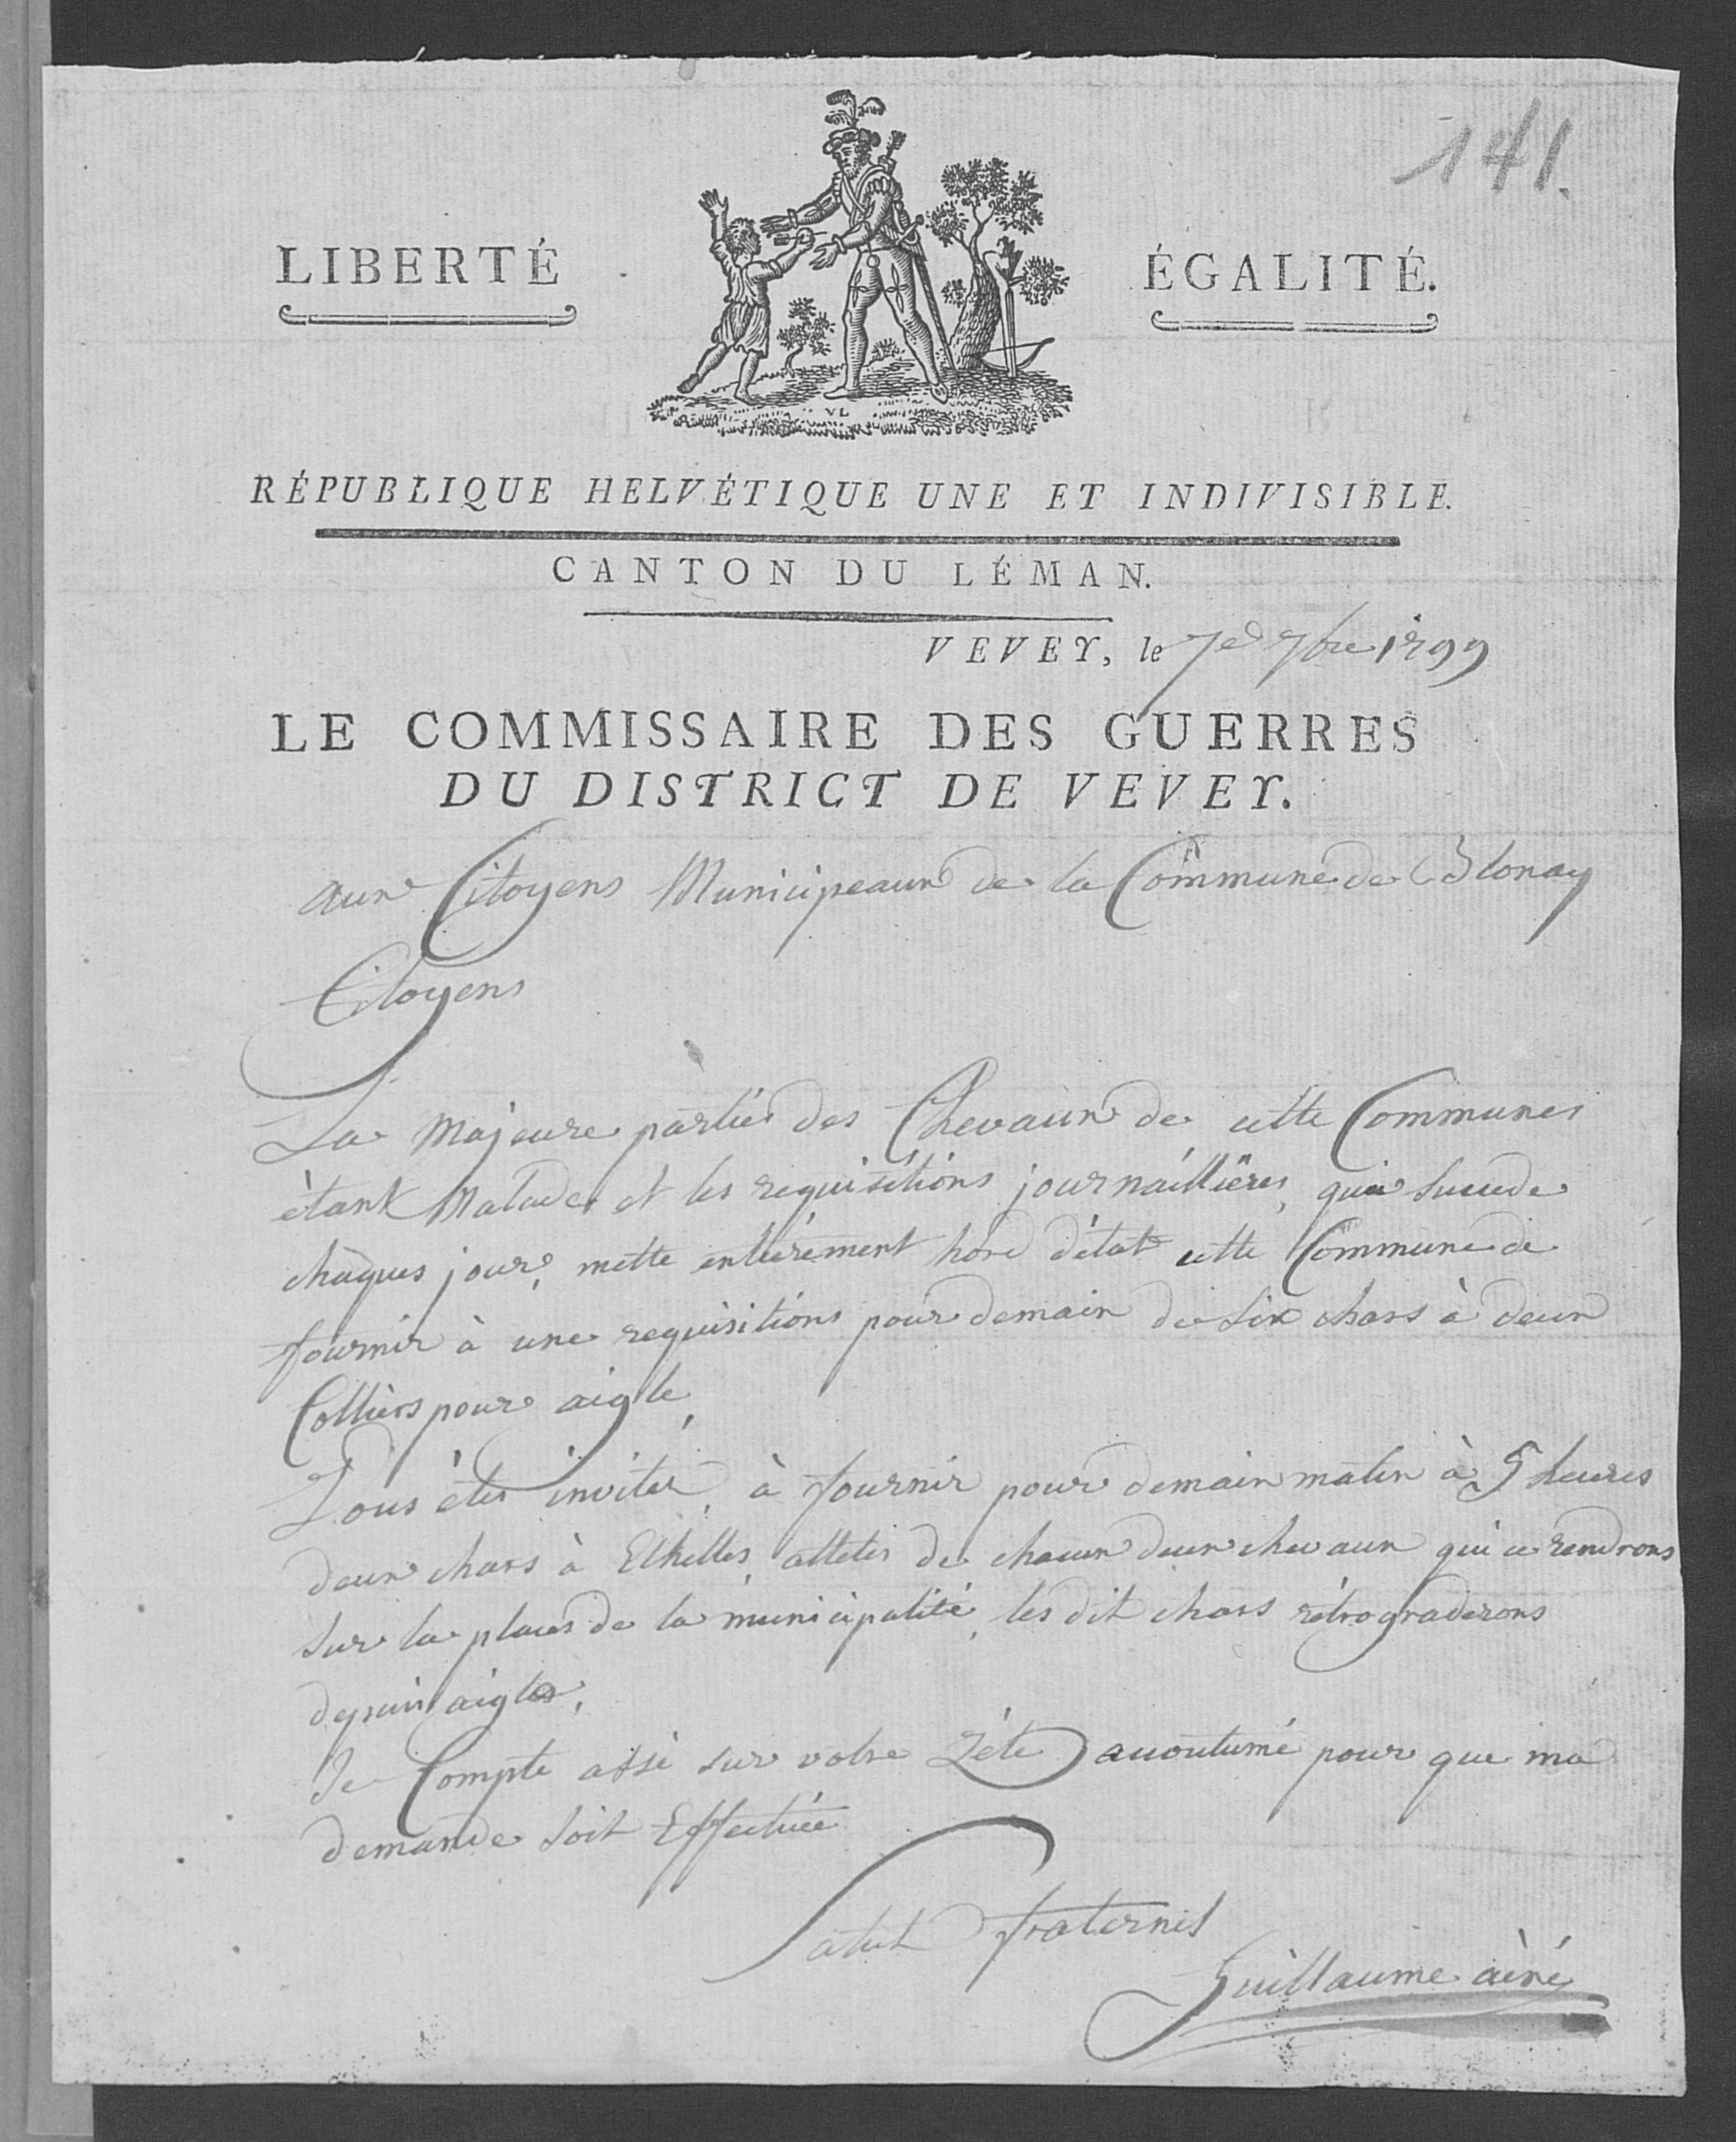 141.
LIBERTÉ ÉGALITÉ.
VL
RÉPUBLIQUE HELVÉTIQUE UNE ET INDIVISIBLE.
CANTON DU LÉMAN.
VEVEY, le 7e 7bre 1799
LE COMMISSAIRE DES GUERRES
DU DISTRICT DE VEVEY.
aux Citoyens Municipeaux de la Commune de Blonay
Citoyens
La Majeure partie des Chevaux de cette Commune
étant Malades et les requisitions journaillières, qui succede
chaques jour, mette entiérement hord d'état cette Commune de
fournir à une requisitions pour demain de six chars à deux
Colliers pour aigle,
Vous étes invités, à fournir pour demain matin à 5 heures
deux chars à Echelles, atteles de chacun deux chevaux qui ce rendrons
sur la place de la municipalité, les dit chars rétrograderons
depuis aigle,
Je Compte assé sur votre Zéle accoutumé pour que ma
demande soit Effectuée
Salut fraternel
Guillaume ainé